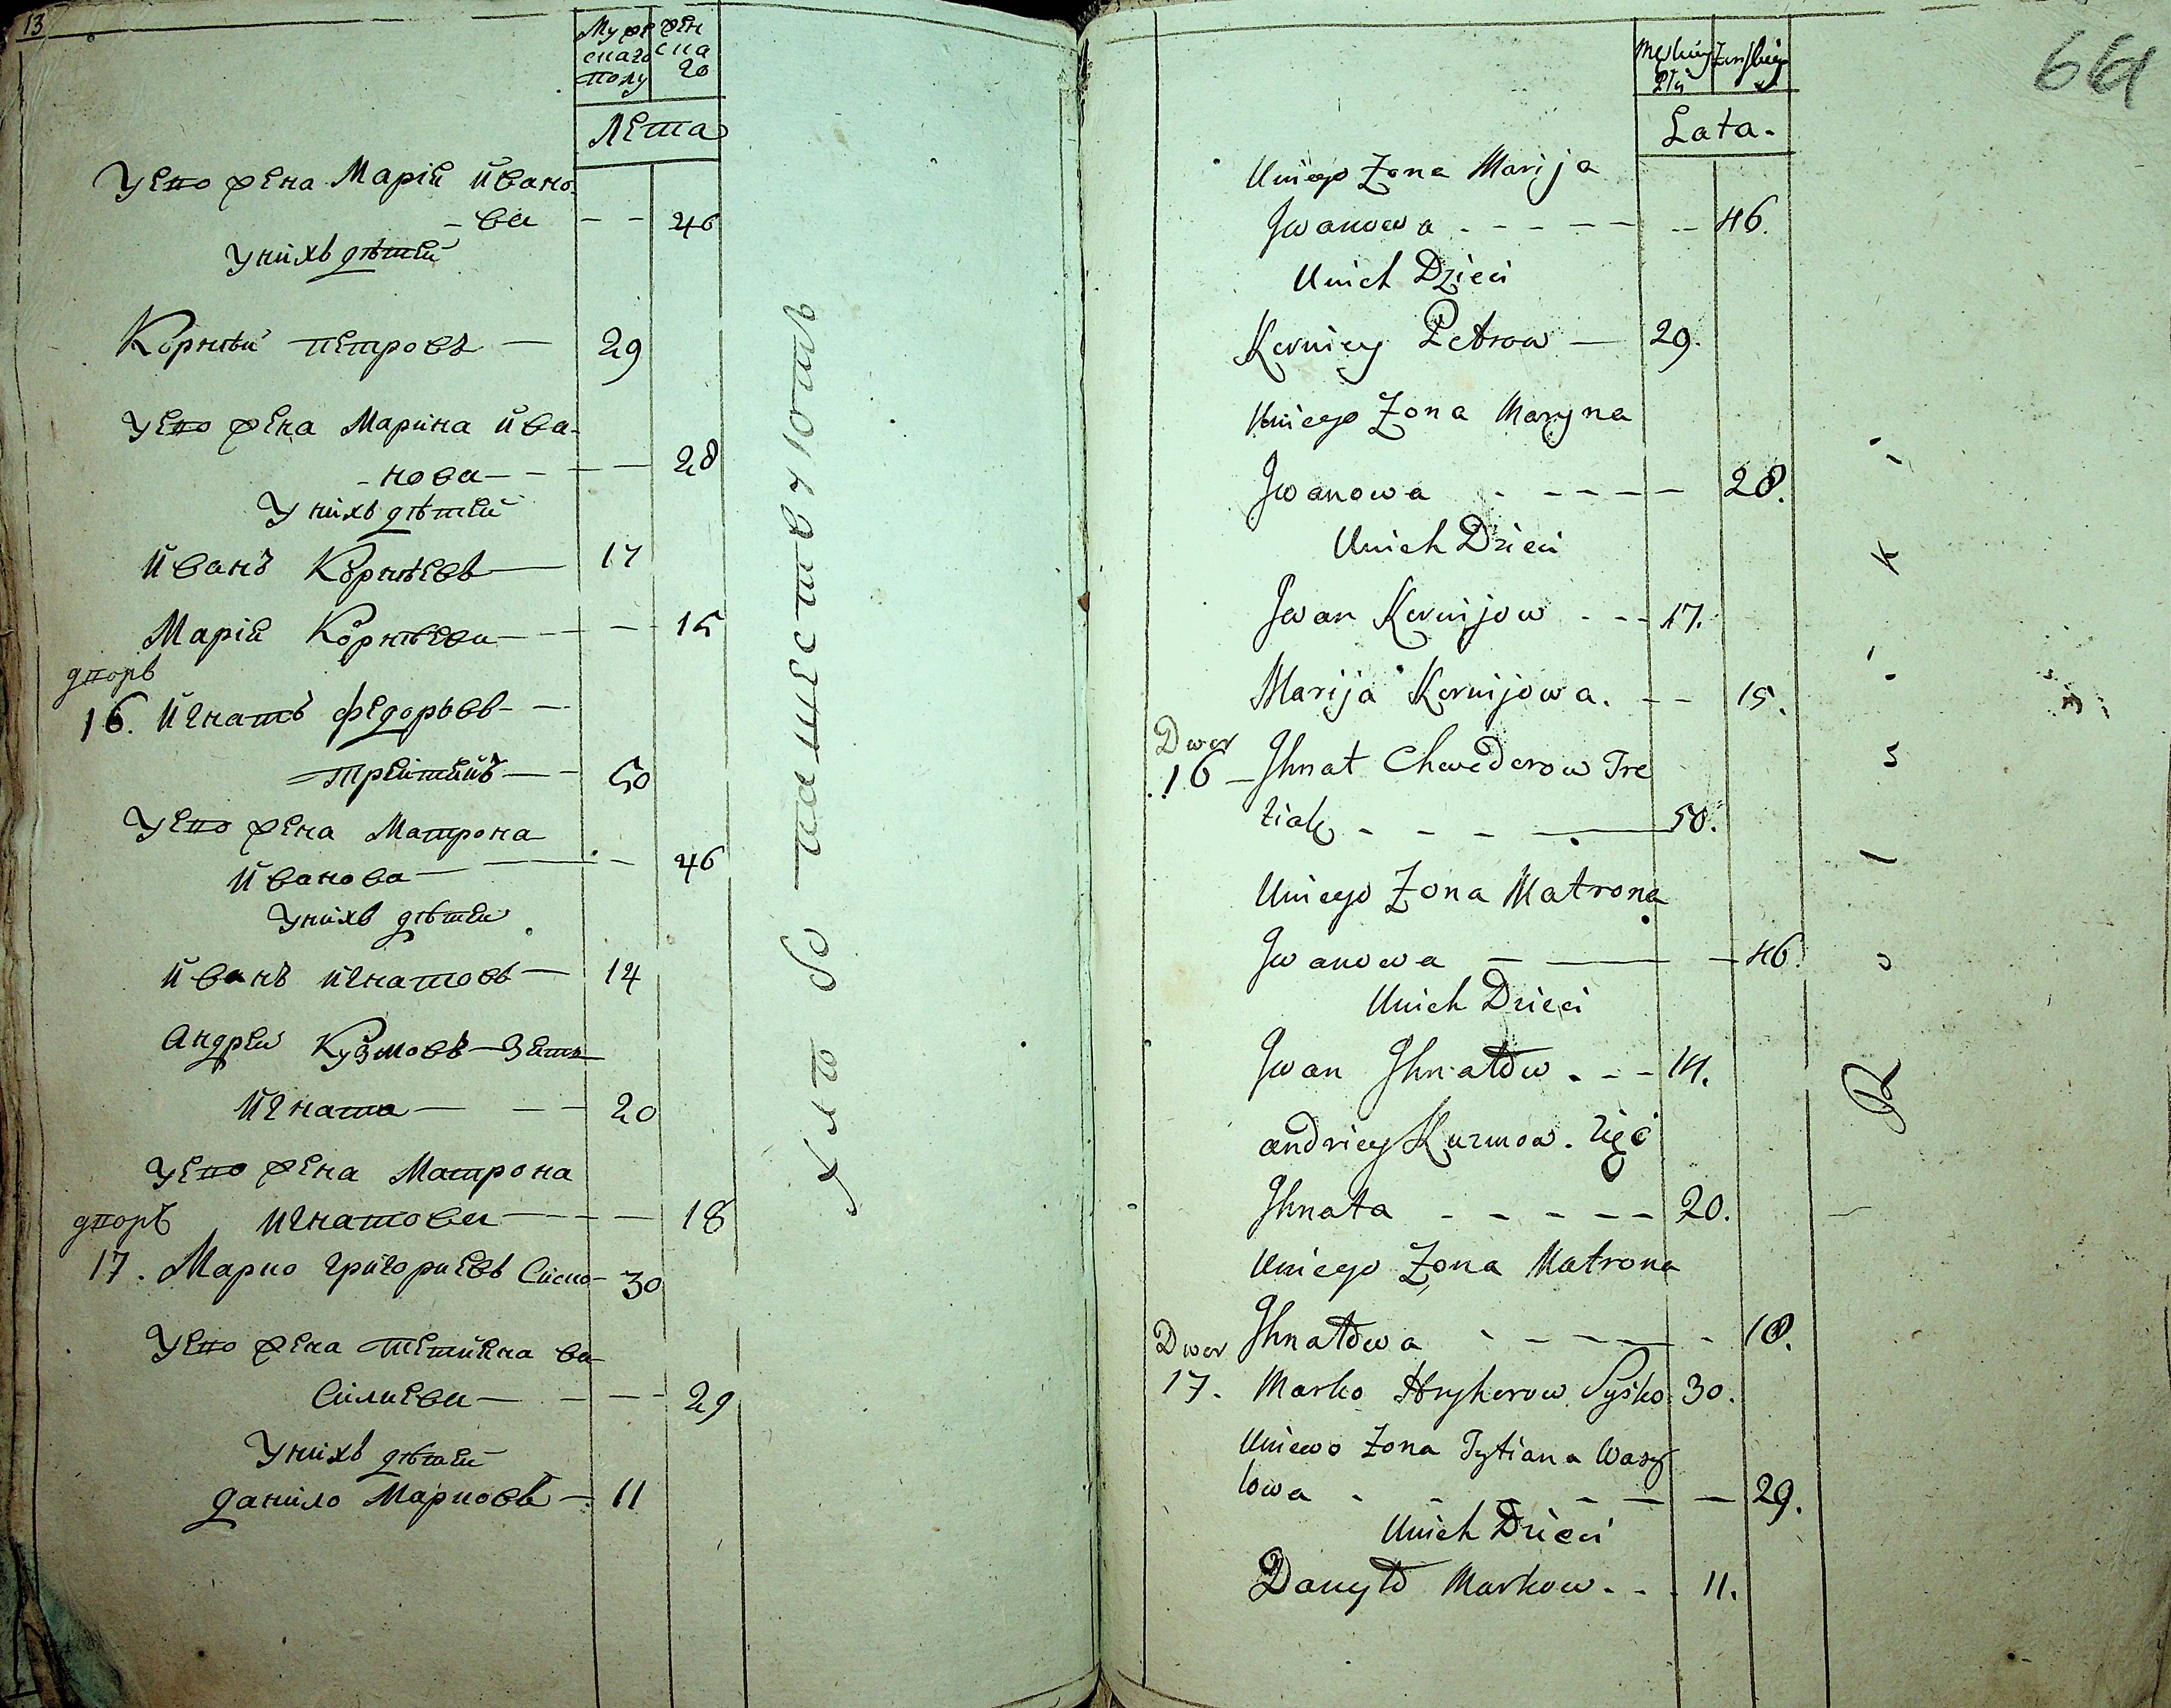 13
Мужескаго полу
женскаго
Лета
Уего жена Марія Ивано-
-ва - - 46
Унихъ дѣтей
Корнѣй Петровъ — 29
Уего жена Марина Ива-
-нова - - - 28
Унихъ дѣтей
Иванъ Корнѣевъ — 17
Марія Корнѣева - - - 15
дворъ
16. Игнатъ Федоровъ - —
50
Уего жена Матрона
Иванова — - 46
Унихъ дѣтей
Иванъ Игнатовъ — 14
Андрей Кузмовъ — Зять
Игната — - - 20
Уего жена Матрона
дворъ Игнатова - - - 18
17. Марко Григориевъ Сиско - 30
Уего жена Тетияна Ва-
силиева — - - - 29
Унихъ дѣтей
Данило Марковъ — 11
661
Męskiey Płci
Żenskiey
Lata.
Uniego Zona Marija
Jwanowa - - - - - - 46.
Unich Dzieci
Kerniey Petrow — 29.
Uniego Zona Maryna
Jwanowa - - - - - 28.
Unich Dzieci
Jwan Kernijow - - - 17.
Marija Kernijowa. - - 15.
Dwor
16 — Jhnat Chwedorow Tre
tiak - - - — 50.
Uniego Zona Matrona
Jwanowa - — - 46.
Unich Dzieci
Jwan Jhnatow . - - 14.
andriey Kuzmow. Zięć
Jhnata - - - - - 20.
Uniego Zona Matrona
Dwor Jhnatowa - - - - - 18.
17. Marko Hryhorow Syśko 30.
Uniewo Zona Tytiana Wasy
lowa - - - - - - 29.
Unich Dzieci
Danyło Markow. - - 11.